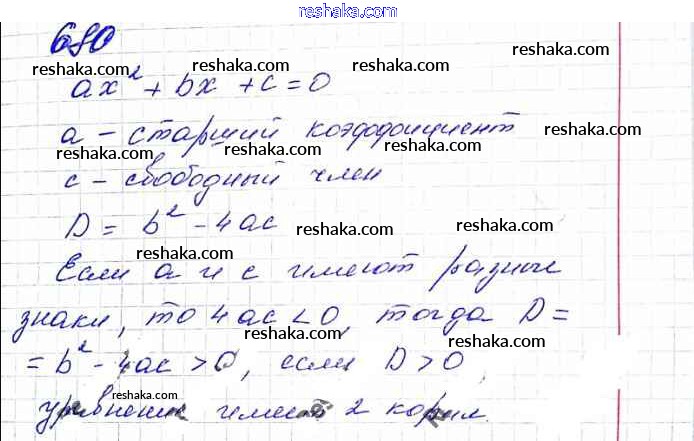 reshaka.com
680
reshaka.com reshaka.com reshaka.com
ax² + bx + c = 0
reshaka.com
а – старший коэффициент
reshaka.com reshaka.com reshaka.com
с – свободный член
D = b² - 4ac
reshaka.com reshaka.com reshaka.com
Если а и с имеют разные
reshaka.com reshaka.com
знаки, то 4ac < 0, тогда D =
reshaka.com
= b² - 4ac > 0, если D > 0,
reshaka.com reshaka.com
уравнение имеет 2 корня.